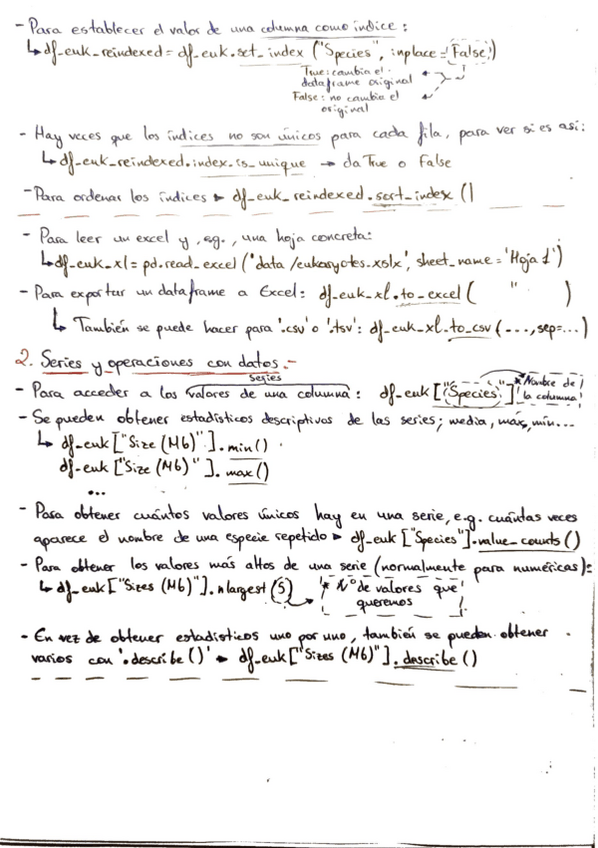 - Para establecer el valor de una columna como índice:
↳ df_euk_reindexed = df_euk.set_index ("Species", inplace = False)
True: cambia el
dataframe original
False: no cambia el
original
- Hay veces que los índices no son únicos para cada fila, para ver si es así:
↳ df_euk_reindexed.index.is_unique → da True o False
- Para ordenar los índices ► df_euk_reindexed.sort_index ()
- Para leer un excel y, e.g., una hoja concreta:
↳ df_euk_xl = pd.read_excel ('data/eukaryotes.xslx', sheet_name = 'Hoja 1')
- Para exportar un dataframe a Excel: df_euk_xl.to_excel ( " )
↳ También se puede hacer para '.csv' o '.tsv': df_euk_xl.to_csv (---, sep=...)
2. Series y operaciones con datos.-
series
- Para acceder a los valores de una columna: df_euk ["Species"] * Nombre de
la columna
- Se pueden obtener estadísticos descriptivos de las series; media, máx, min...
↳ df_euk ["Size (Mb)"].min()
df_euk ["Size (Mb)"].max()
...
- Para obtener cuántos valores únicos hay en una serie, e.g. cuántas veces
aparece el nombre de una especie repetido ► df_euk ["Species"].value_counts ()
- Para obtener los valores más altos de una serie (normalmente para numéricas):
↳ df_euk ["Sizes (Mb)"].nlargest (5) * Nº de valores que
queremos
- En vez de obtener estadísticos uno por uno, también se pueden obtener
varios con '.describe ()' ► df_euk ["Sizes (Mb)"].describe ()